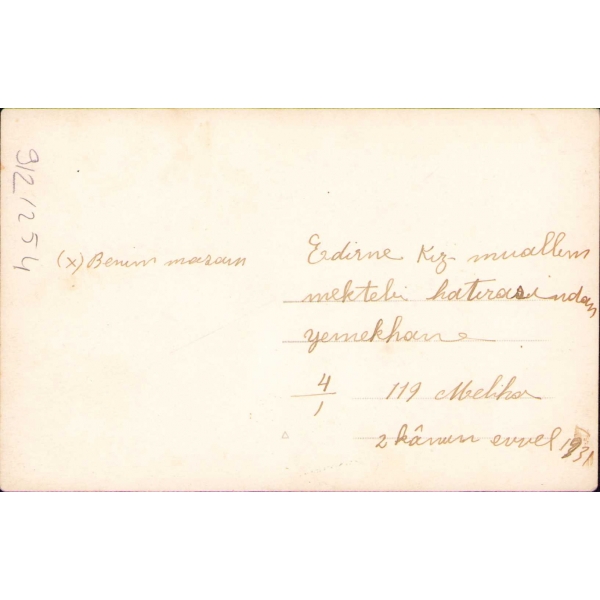 912/254
(x) Benim masam
Edirne Kız muallim
mektebi hatırasından
yemekhane
4/1 119 Meliha
2 kânun evvel 1931